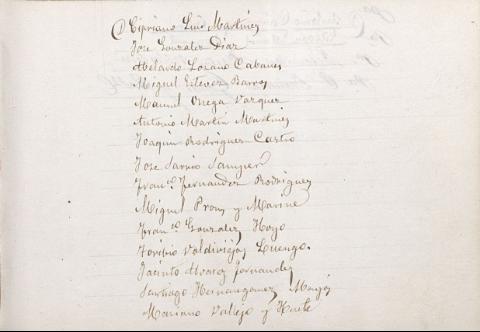 D Cipriano Luis Martinez
Jose Gonzalez Diaz
Abelardo Lozano Cabanes
Miguel Estevez Barros
Manuel Ortega Vazquez
Antonio Martin Martinez
Joaquin Rodriguez Castro
Jose Sarrio Samper
Franco Fernandez Rodriguez
Miguel Prom y Marine
Franco Gonzalez Hoyo
Toribio Valdivieja Luengo.
Jacinto Alvarez Fernandez
Santiago Hernangomez
Mariano Vallejo y Huete